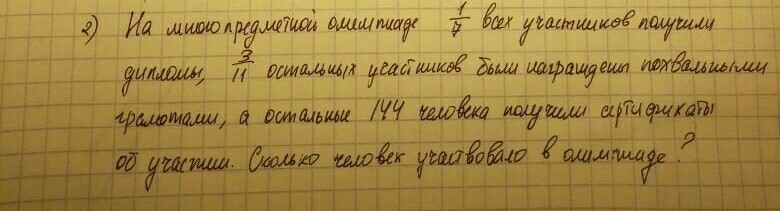 2) На многопредметной олимпиаде 1/7 всех участников получили
дипломы, 3/11 остальных участников были награждены похвальными
грамотами, а остальные 144 человека получили сертификаты
об участии. Сколько человек участвовало в олимпиаде?